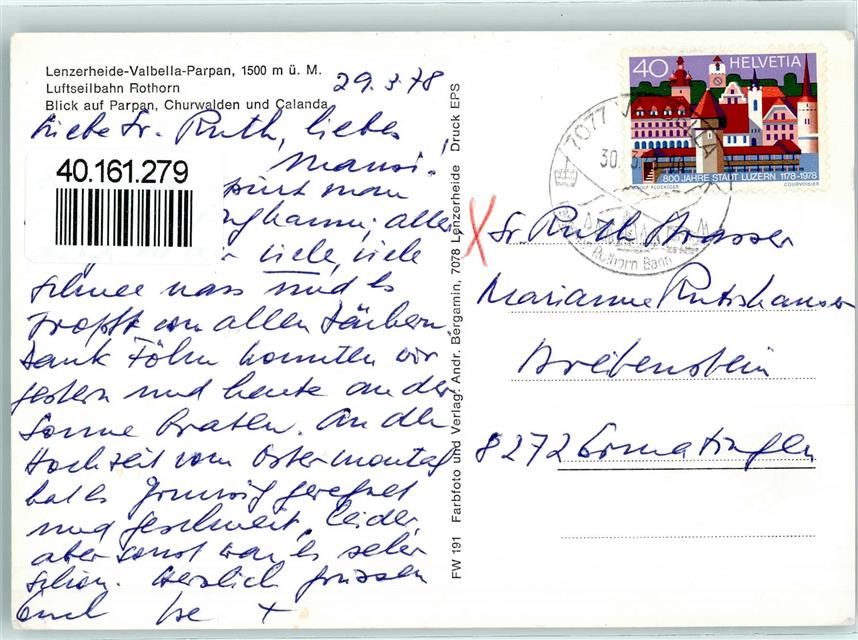 Lenzerheide-Valbella-Parpan, 1500 m ü. M.
Luftseilbahn Rothorn
Blick auf Parpan, Churwalden und Calanda
29.3.78
Liebe Fr. Ruth, liebes
Mausi!
40.161.279
spürt man
alles
viele, viele
Schnee nass und es
tropft von allen Dächern.
Dank Föhn konnten wir
gestern und heute an der
Sonne braten. An der
Hochzeit vom Ostermontag
hat es geregnet
und geschneit, leider,
aber sonst war es sehr
schön. Herzlich grüssen
Euch
FW 191 Farbfoto und Verlag: Andr. Bergamin, 7078 Lenzerheide Druck EPS
HELVETIA
40
800 JAHRE STADT LUZERN 1178-1978
COURVOISIER
7077 VALBELLA
30.3.
Rothorn Bahn
X Fr. Ruth Strasser
Marianne Rutishauser
Breitenstein
8272 Ermatingen